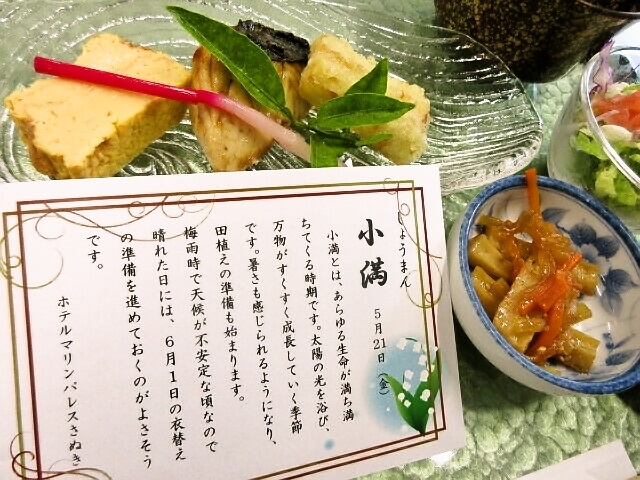 しょうまん
小満　5月21日（金）
小満とは、あらゆる生命が満ち満
ちてくる時期です。太陽の光を浴び、
万物がすくすく成長していく季節
です。暑さも感じられるようになり、
田植えの準備も始まります。
梅雨時で天候が不安定な頃なので
晴れた日には、6月1日の衣替え
の準備を進めておくのがよさそう
です。
ホテルマリンパレスさぬき